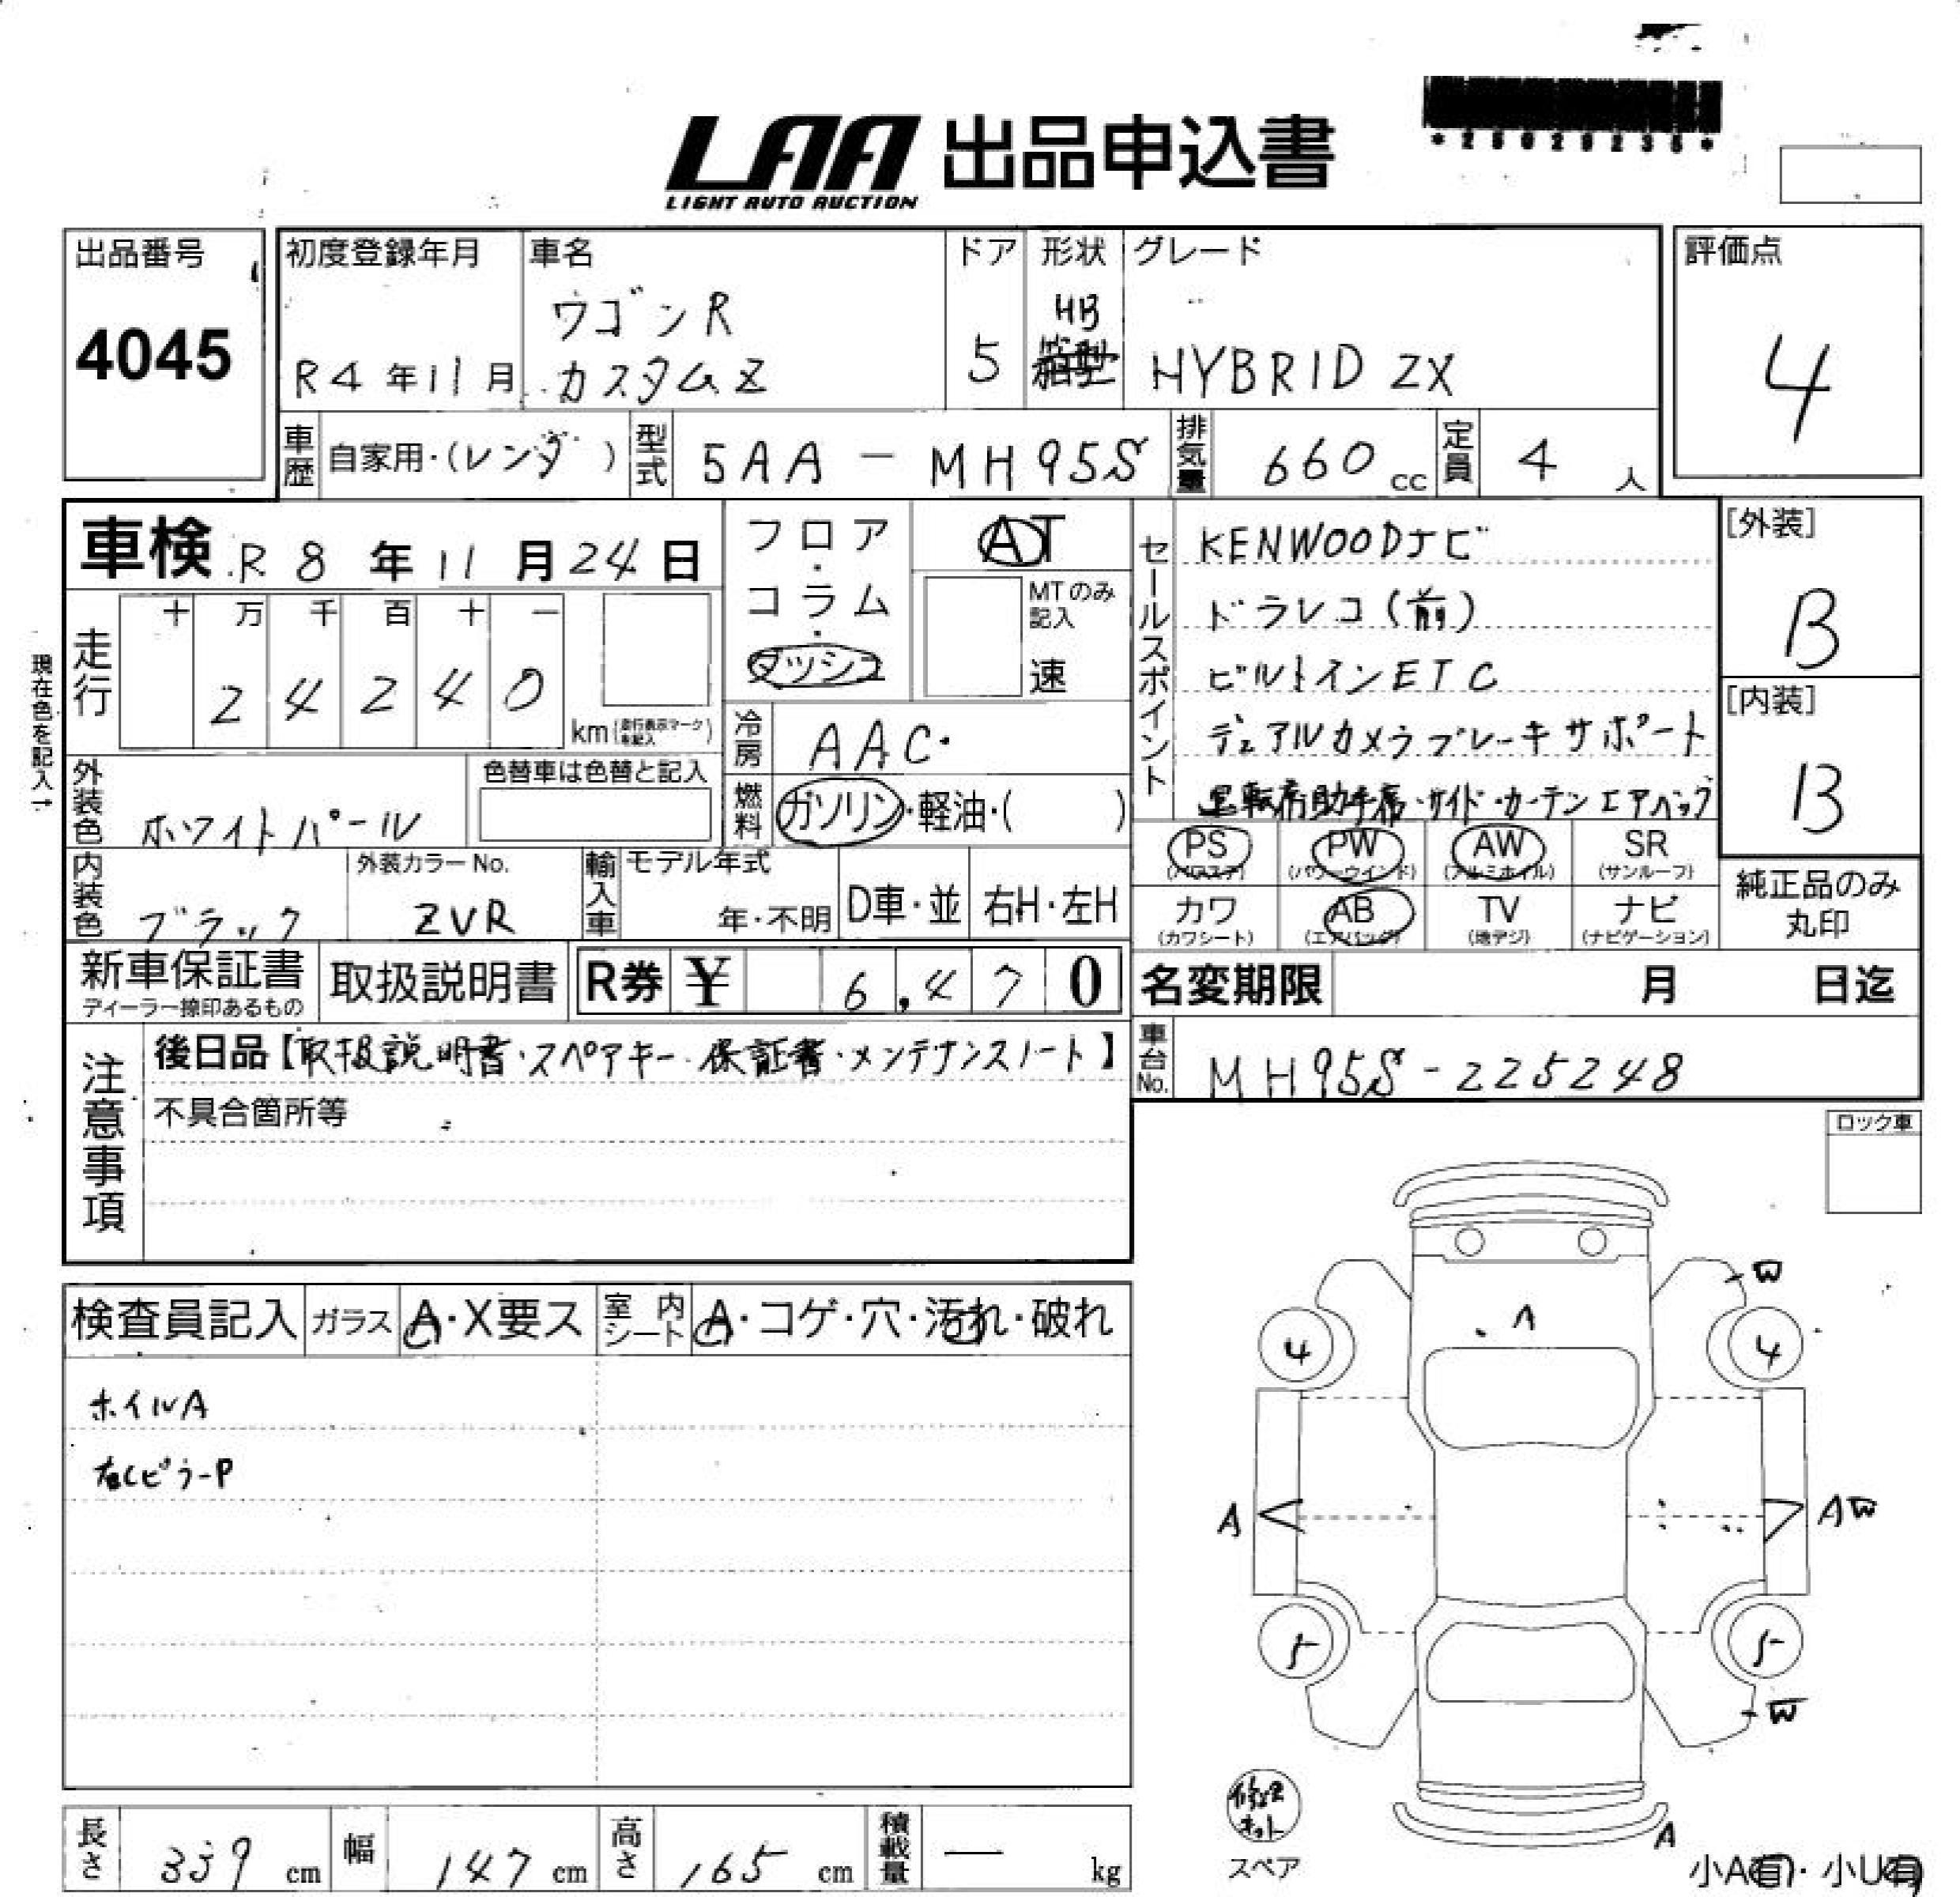 LAA 出品申込書
LIGHT AUTO AUCTION
*25029235*
出品番号
4045
初度登録年月
R4年11月
車名
ワゴンR
カスタムZ
ドア
5
形状
HB
箱型
グレード
HYBRID ZX
評価点
4
車歴
自家用・(レンタ゛)
型式
5AA - MH95S
排気量
660cc
定員
4人
車検 R8年11月24日
フロア・コラム・ダッシュ
AT
MTのみ記入
速
セールスポイント
KENWOODナビ
ドラレコ(前)
ビルトインETC
デュアルカメラブレーキサポート
運転席助手席・サイド・カーテンエアバック
[外装]
B
[内装]
B
現在色を記入→
走行
十 万 千 百 十 一
2 4 2 4 0
km(走行表示マークを記入)
冷房
AAC
外装色
ホワイトパール
色替車は色替と記入
燃料
ガソリン・軽油・( )
PS PW AW SR
(パワステ) (パワーウインド) (アルミホイル) (サンルーフ)
カワ AB TV ナビ
(カワシート) (エアバッグ) (地デジ) (ナビゲーション)
純正品のみ
丸印
内装色
ブラック
外装カラーNo.
ZVR
輸入車
モデル年式
年・不明
D車・並
右H・左H
新車保証書
ディーラー捺印あるもの
取扱説明書
R券 ¥ 6,470
名変期限 月 日迄
注意事項
後日品【取扱説明書・スペアキー・保証書・メンテナンスノート】
不具合箇所等
車台No.
MH95S-225248
ロック車
検査員記入
ガラス
A・X要ス
室内シート
A・コゲ・穴・汚れ・破れ
ホイルA
右CピラーP
W
A
4 4
A
AW
5 5
W
修理キット
スペア
A
小A(有)・小U(有)
長さ 339cm
幅 147cm
高さ 165cm
積載量 — kg